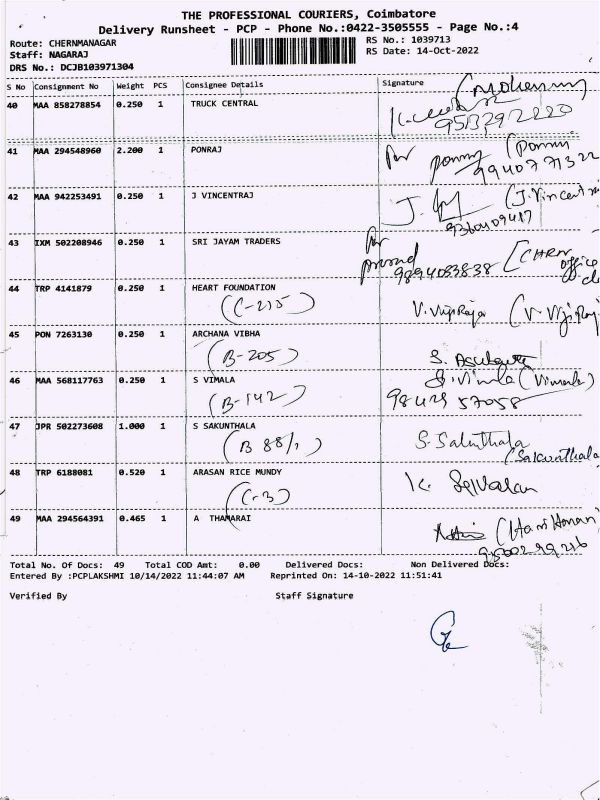 THE PROFESSIONAL COURIERS, Coimbatore
Delivery Runsheet - PCP - Phone No.:0422-3505555 - Page No.:4
Route: CHERNMANAGAR
Staff: NAGARAJ
DRS No.: DCJB103971304
RS No.: 1039713
RS Date: 14-Oct-2022
S No Consignment No Weight PCS Consignee Details Signature
40 MAA 858278854 0.250 1 TRUCK CENTRAL
9513292220
41 MAA 294548960 2.200 1 PONRAJ
9940771322
42 MAA 942253491 0.250 1 J VINCENTRAJ J. (J.Vincent
9360409417
43 IXM 502208946 0.250 1 SRI JAYAM TRADERS
9894083838 office
44 TRP 4141879 0.250 1 HEART FOUNDATION
(C-215)
45 PON 7263130 0.250 1 ARCHANA VIBHA
(B-205)
46 MAA 568117763 0.250 1 S VIMALA
(B-142) 98429 57058
47 JPR 502273608 1.000 1 S SAKUNTHALA
(B 88/1) S. Sakunthala
(Sakunthala
48 TRP 6188081 0.520 1 ARASAN RICE MUNDY
(C-3) K. Selvaran
49 MAA 294564391 0.465 1 A THAMARAI
Total No. Of Docs: 49 Total COD Amt: 0.00 Delivered Docs: Non Delivered Docs:
Entered By :PCPLAKSHMI 10/14/2022 11:44:07 AM Reprinted On: 14-10-2022 11:51:41
Verified By Staff Signature